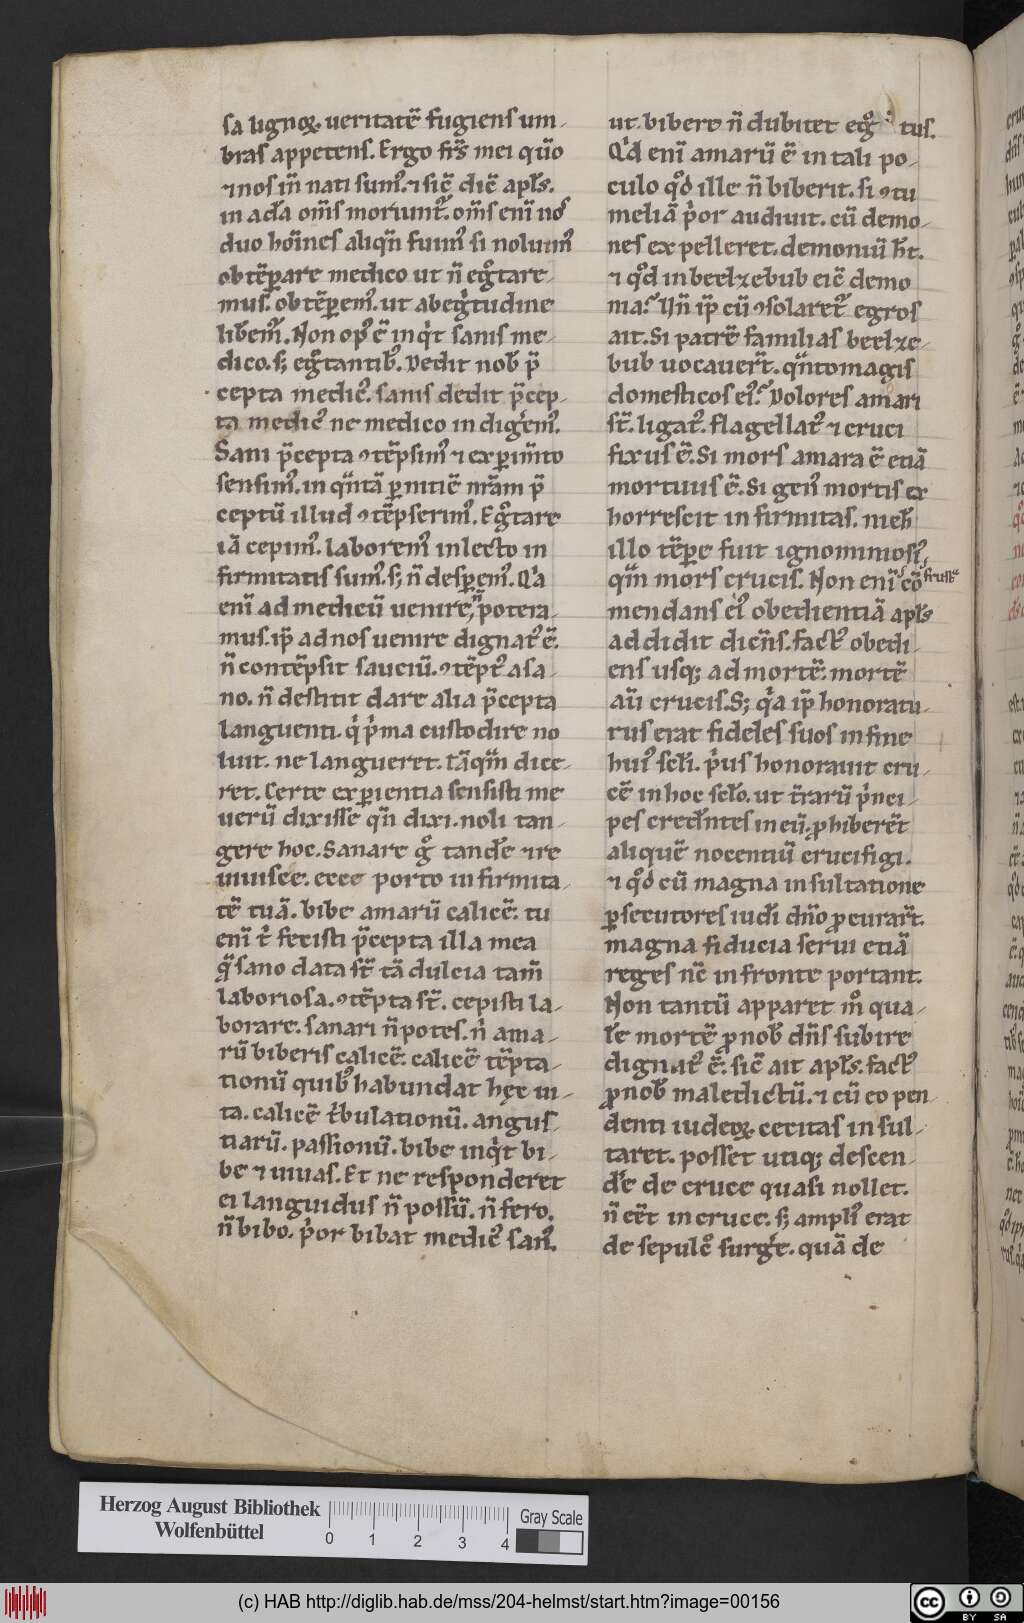 sa lignoꝝ. ueritatē fugiens um-
bras appetens. Ergo frs̄ mei qūo
⁊ nos in̄ nati sumꝰ. ⁊ sic̄ dic̄ apl̄s.
in ada oms̄ moriunt᷑. oms̄ enī nos
duo hoīnes aliqn̄ fuimꝰ si noluimꝰ
obtēꝑare medico ut n̄ egͦtare-
mus. obtēꝑemꝰ. ut ab egͥtudine
lib̄em᷑. Non opꝰ ē inqͥt sanis me-
dico. sꝫ egͦtantibꝰ. Dedit nob̄ p̄
cepta medicꝰ. sanis dedit p̄cep-
ta medicꝰ ne medico indigͥemꝰ.
Sani p̄cepta ꝯtēpsimꝰ ⁊ exꝑim̄to
sensimꝰ. in qͣntā ꝑnitiē nrām p̄
ceptū illud ꝯtēpserimꝰ. Egͦtare
iā cepimꝰ. laboremꝰ in lecto in
firmitatis sumꝰ. sꝫ n̄ desꝑemꝰ. Qͥa
enī ad medicū uenire, n̄ potera-
mus. ip̄ ad nos uenire dignatꝰ ē.
n̄ contēpsit sauciū. ꝯtēptꝰ a sa-
no. n̄ destitit dare alia p̄cepta
languenti. qͥ pͥma custodire no
luit. ne langueret. tāqͣm dice-
ret. Certe experientia sensisti me
uerū dixisse qn̄ dixi. noli tan-
gere hoc. Sanare gͦ tande ⁊ re
uiuisce. ecce porto infirmita-
tē tuā. bibe amarū calicē. tu
enī tͥ fecisti p̄cepta illa mea
qͣ sano data st̄ tā dulcia tam̄
laboriosa. ꝯtēpta st̄. cepisti la-
borare. sanari n̄ potes. nͥ ama-
rū biberis calicē. calicē tēpta-
tionū quibꝰ habundat hęc ui-
ta. calicē tͥbulationū. angus-
tiarū. passionū. bibe inqͥt bi-
be ⁊ uiuas. Et ne responderet
ei languidus n̄ possū. n̄ fero.
n̄ bibo. pͥor bibat medicꝰ sanꝰ.
ut bibere n̄ dubitet egͦ tus.
Qͥd enī amarū ē in tali po-
culo qͦd ille n̄ biberit. si ꝯtu
meliā pͥor audiuit. cū demo-
nes expelleret. demoniū h̄t.
⁊ qͦd in beelzebub eic̄ demo
nia. Un̄ ip̄ cū ꝯsolaret᷑ egros
ait. Si patrē familias beelze-
bub uocauer̄t. qͣntomagis
domesticos eiꝰ. Dolores amari
st̄. ligatꝰ. flagellatꝰ ⁊ cruci
fixus ē. Si mors amara ē etiā
mortuus ē. Si genꝰ mortis ex
horrescit infirmitas. nich̄
illo tēpore fuit ignominiosiꝰ
qͣm mors crucis. Non enī cō frustͣ
mendans eiꝰ obedientiā apl̄s
addidit dicen̄s. factꝰ obedi-
ens usqꝫ ad mortē. mortē
aū crucis. Sꝫ qͥa ip̄ honoratu-
rus erat fideles suos in fine
huiꝰ scl̄i. pͥus honorauit cru-
cē in hoc scl̄o. ut t̄rarū pͥnci-
pes credn̄tes in eū. ꝓhiberēt
aliquē nocentiū crucifigi.
⁊ qͦd cū magna insultatione
ꝑsecutores iudi dn̄o ꝓcurar̄t.
magna fiducia serui etiā
reges nc̄ in fronte portant.
Non tantū apparet mͦ qua-
le mortē ꝓ nob̄ dn̄s subire
dignatꝰ ē. sic̄ ait apl̄s. factꝰ
ꝓ nob̄ maledictū. ⁊ cū eo pen
denti iudeoꝝ. cecitas insul-
taret. posset utiqꝫ descen-
de de cruce quasi nollet.
n̄ eēt in cruce. sꝫ ampliꝰ erat
de sepulcͦ surgͥe. quā de
Herzog August Bibliothek
Wolfenbüttel
0 1 2 3 4
Gray Scale
(c) HAB http://diglib.hab.de/mss/204-helmst/start.htm?image=00156
cc BY SA